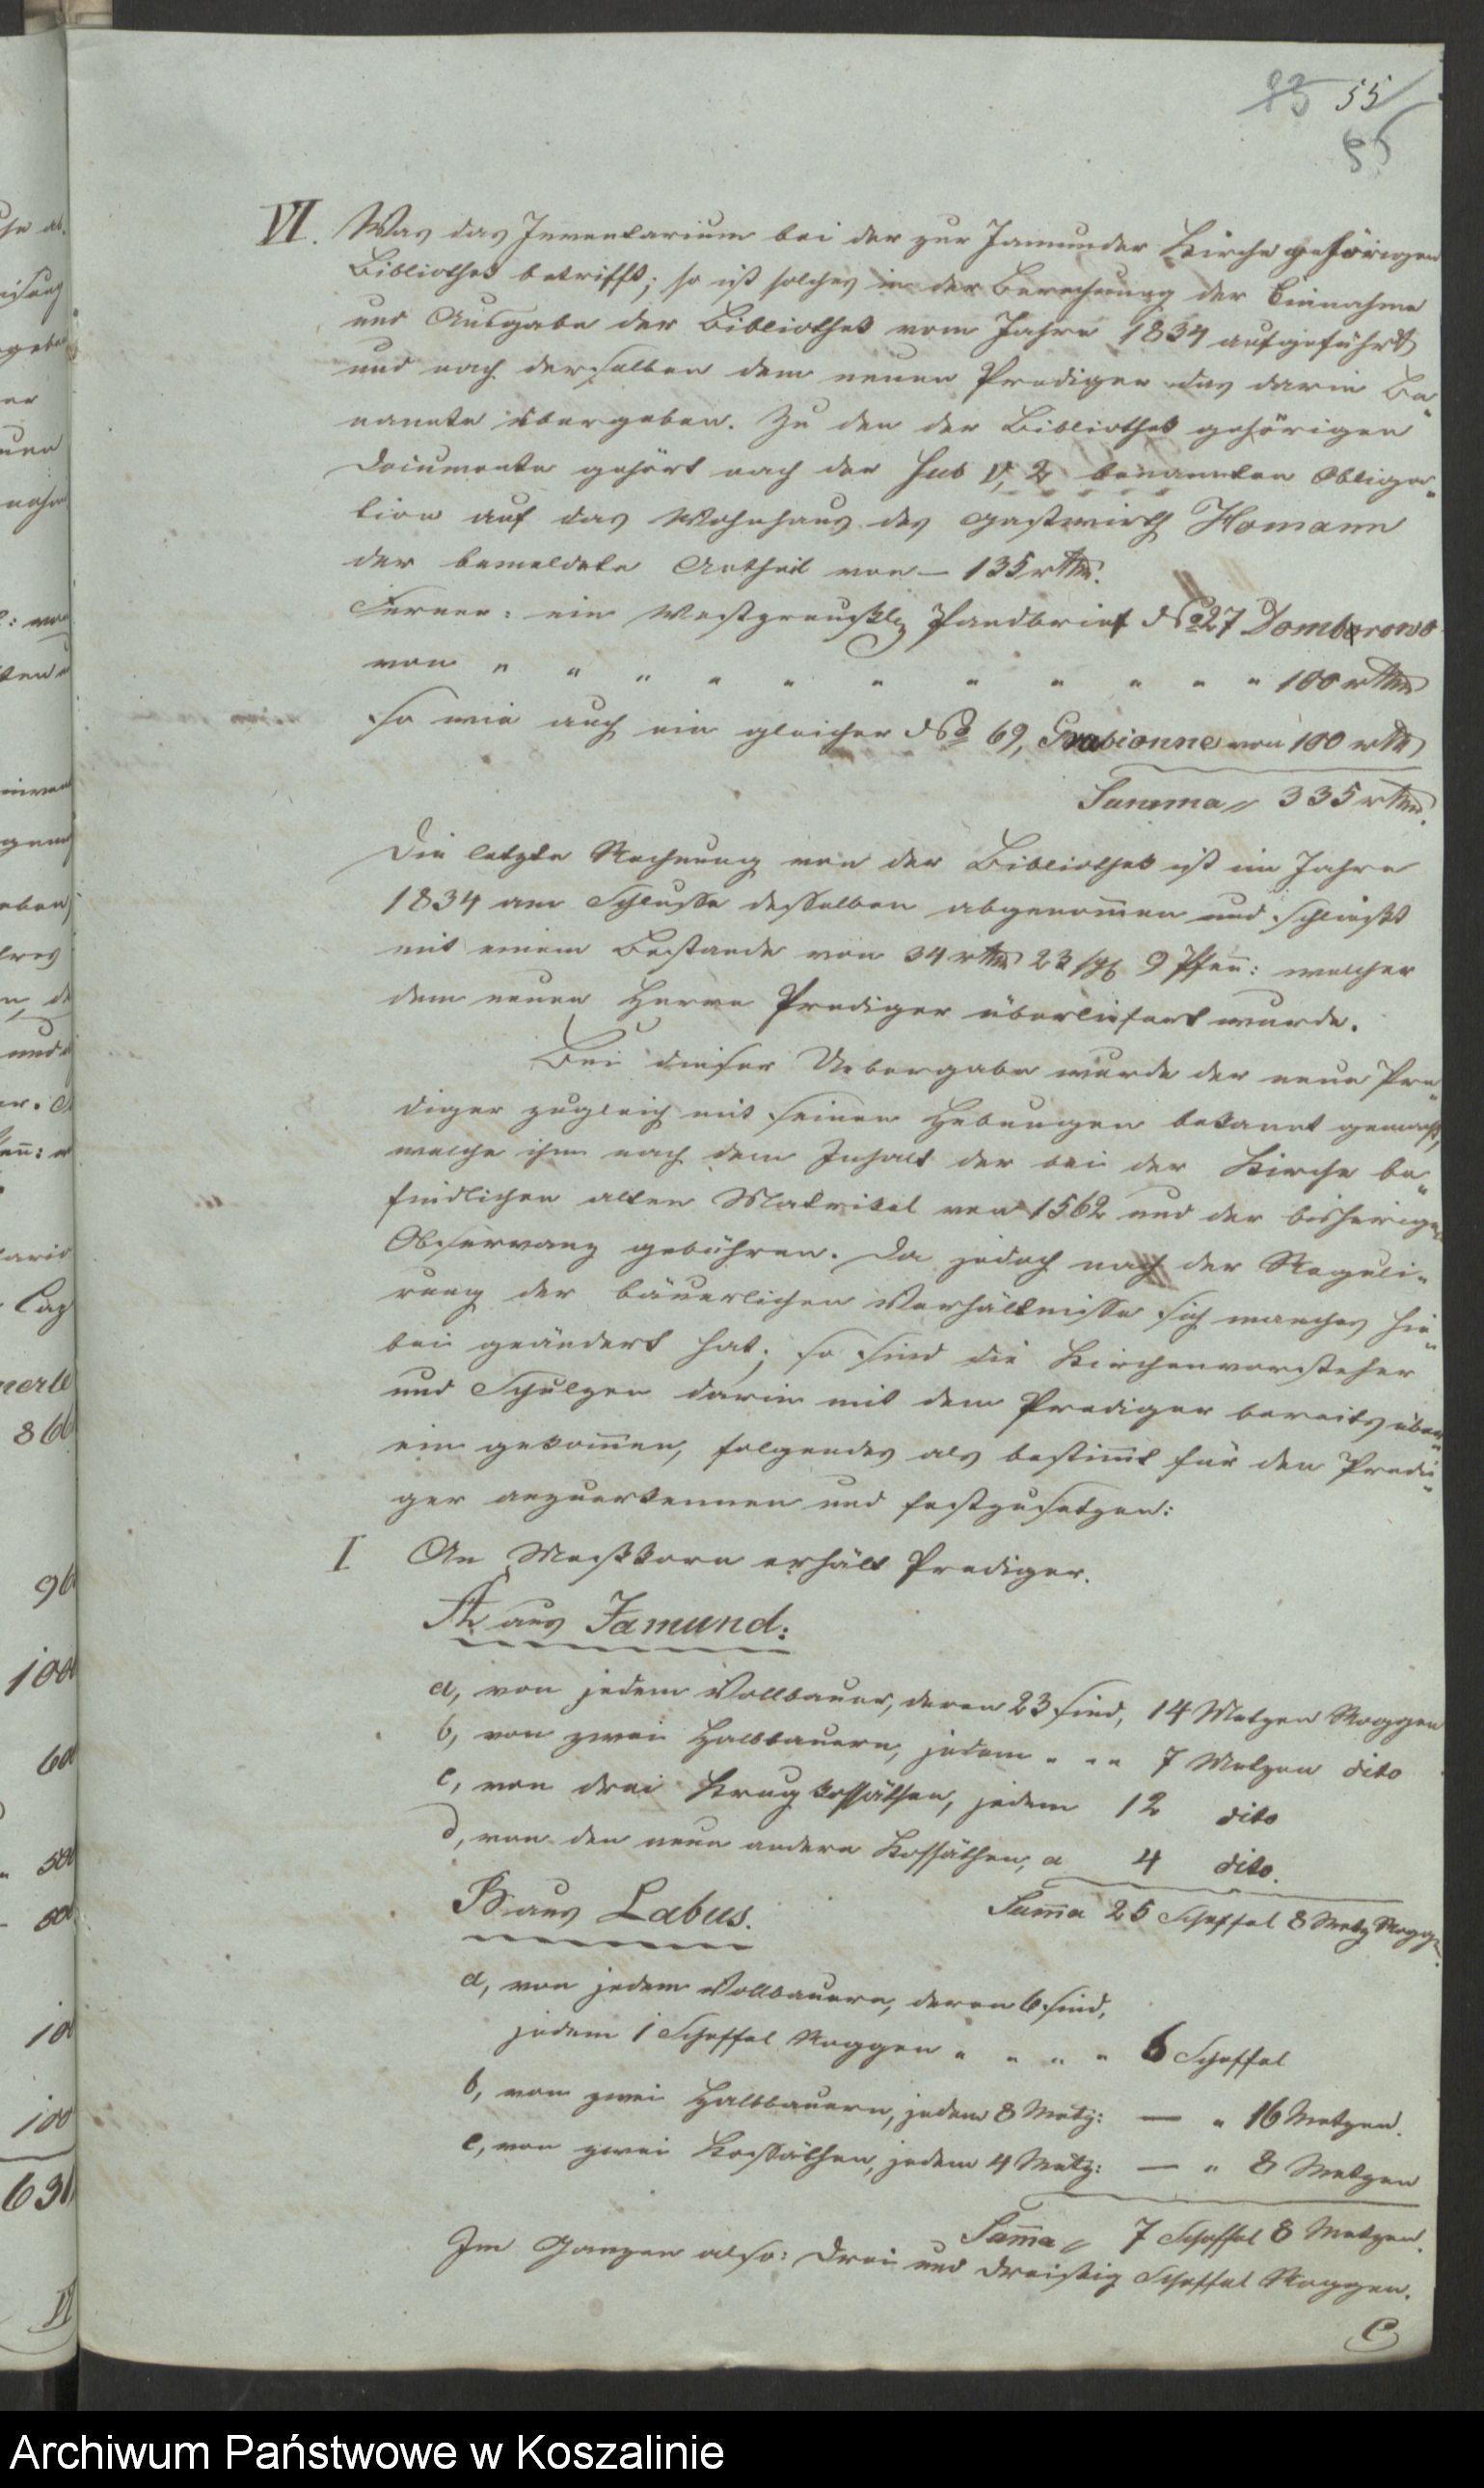 55
55
VI. Was das Inventarium bei der zur Jamunder Kirche gehörigen
Bibliothek betrifft; so ist solches in der Berechnung der Einnahme
und Ausgabe der Bibliothek vom Jahre 1834 aufgeführt
und nach derselben dem neuen Prediger das darin Be„
nannte übergeben. Zu den der Bibliothek gehörigen
Documente gehört nach der sub V, 2 benannten Obliga„
tion auf das Wohnhaus des Gastwirth Homann
der bemeldete Antheil von — 135 rthlr.
Ferner: ein Westpreußl. Pfandbrief No 27 Domberowo
von " " " " " " " " " " " 100 rthlr
so wie auch ein gleicher No 69, Grabionne von 100 rthlr
Summa 335 rthlr.
Die letzte Rechnung von der Bibliothek ist im Jahre
1834 am Schlusse desselben abgenom̄en und schließt
mit einem Bestande von 34 rthlr 23 sgl 9 Pfen̄: welcher
dem neuen Herrn Prediger überliefert wurde.
Bei dieser Uebergabe wurde der neue Pre„
diger zugleich mit seinen Hebungen bekannt gemacht,
welche ihm nach dem Inhalt der bei der Kirche be„
findlichen alten Matrikel von 1562 und der bisherigen
Observanz gebühren. Da jedoch nach der Reguli„
rung der bäuerlichen Verhältnisse sich manches hie„
bei geändert hat; so sind die Kirchenvorsteher
und Schulzen darin mit dem Prediger bereits über„
ein gekom̄en, folgendes als bestim̄t für den Predi„
ger anzuerkennen und festzusetzen:
I An Messkorn erhält Prediger.
A, aus Jamund:
a, von jedem Vollbauer, deren 23 sind, 14 Metzen Roggen
b, von zwei Halbbauern, jedem " " " 7 Metzen dito
c, von drei Krugkossäthen, jedem 12 dito
d, von den neun andern Kossäthen, a 4 dito.
Sum̄a 25 Scheffel 8 Metz Rogg.
B aus Labus.
a, von jedem Vollbauern, deren 6 sind,
jedem 1 Scheffel Roggen " " " " 6 Scheffel
b, von zwei Halbbauern, jedem 8 Metz: — " 16 Metzen.
c, von zwei Kossäthen, jedem 4 Metz: — " 8 Metzen
Sum̄a 7 Scheffel 8 Metzen.
Im Ganzen also: Drei und dreißig Scheffel Roggen.
C
Archiwum Państwowe w Koszalinie